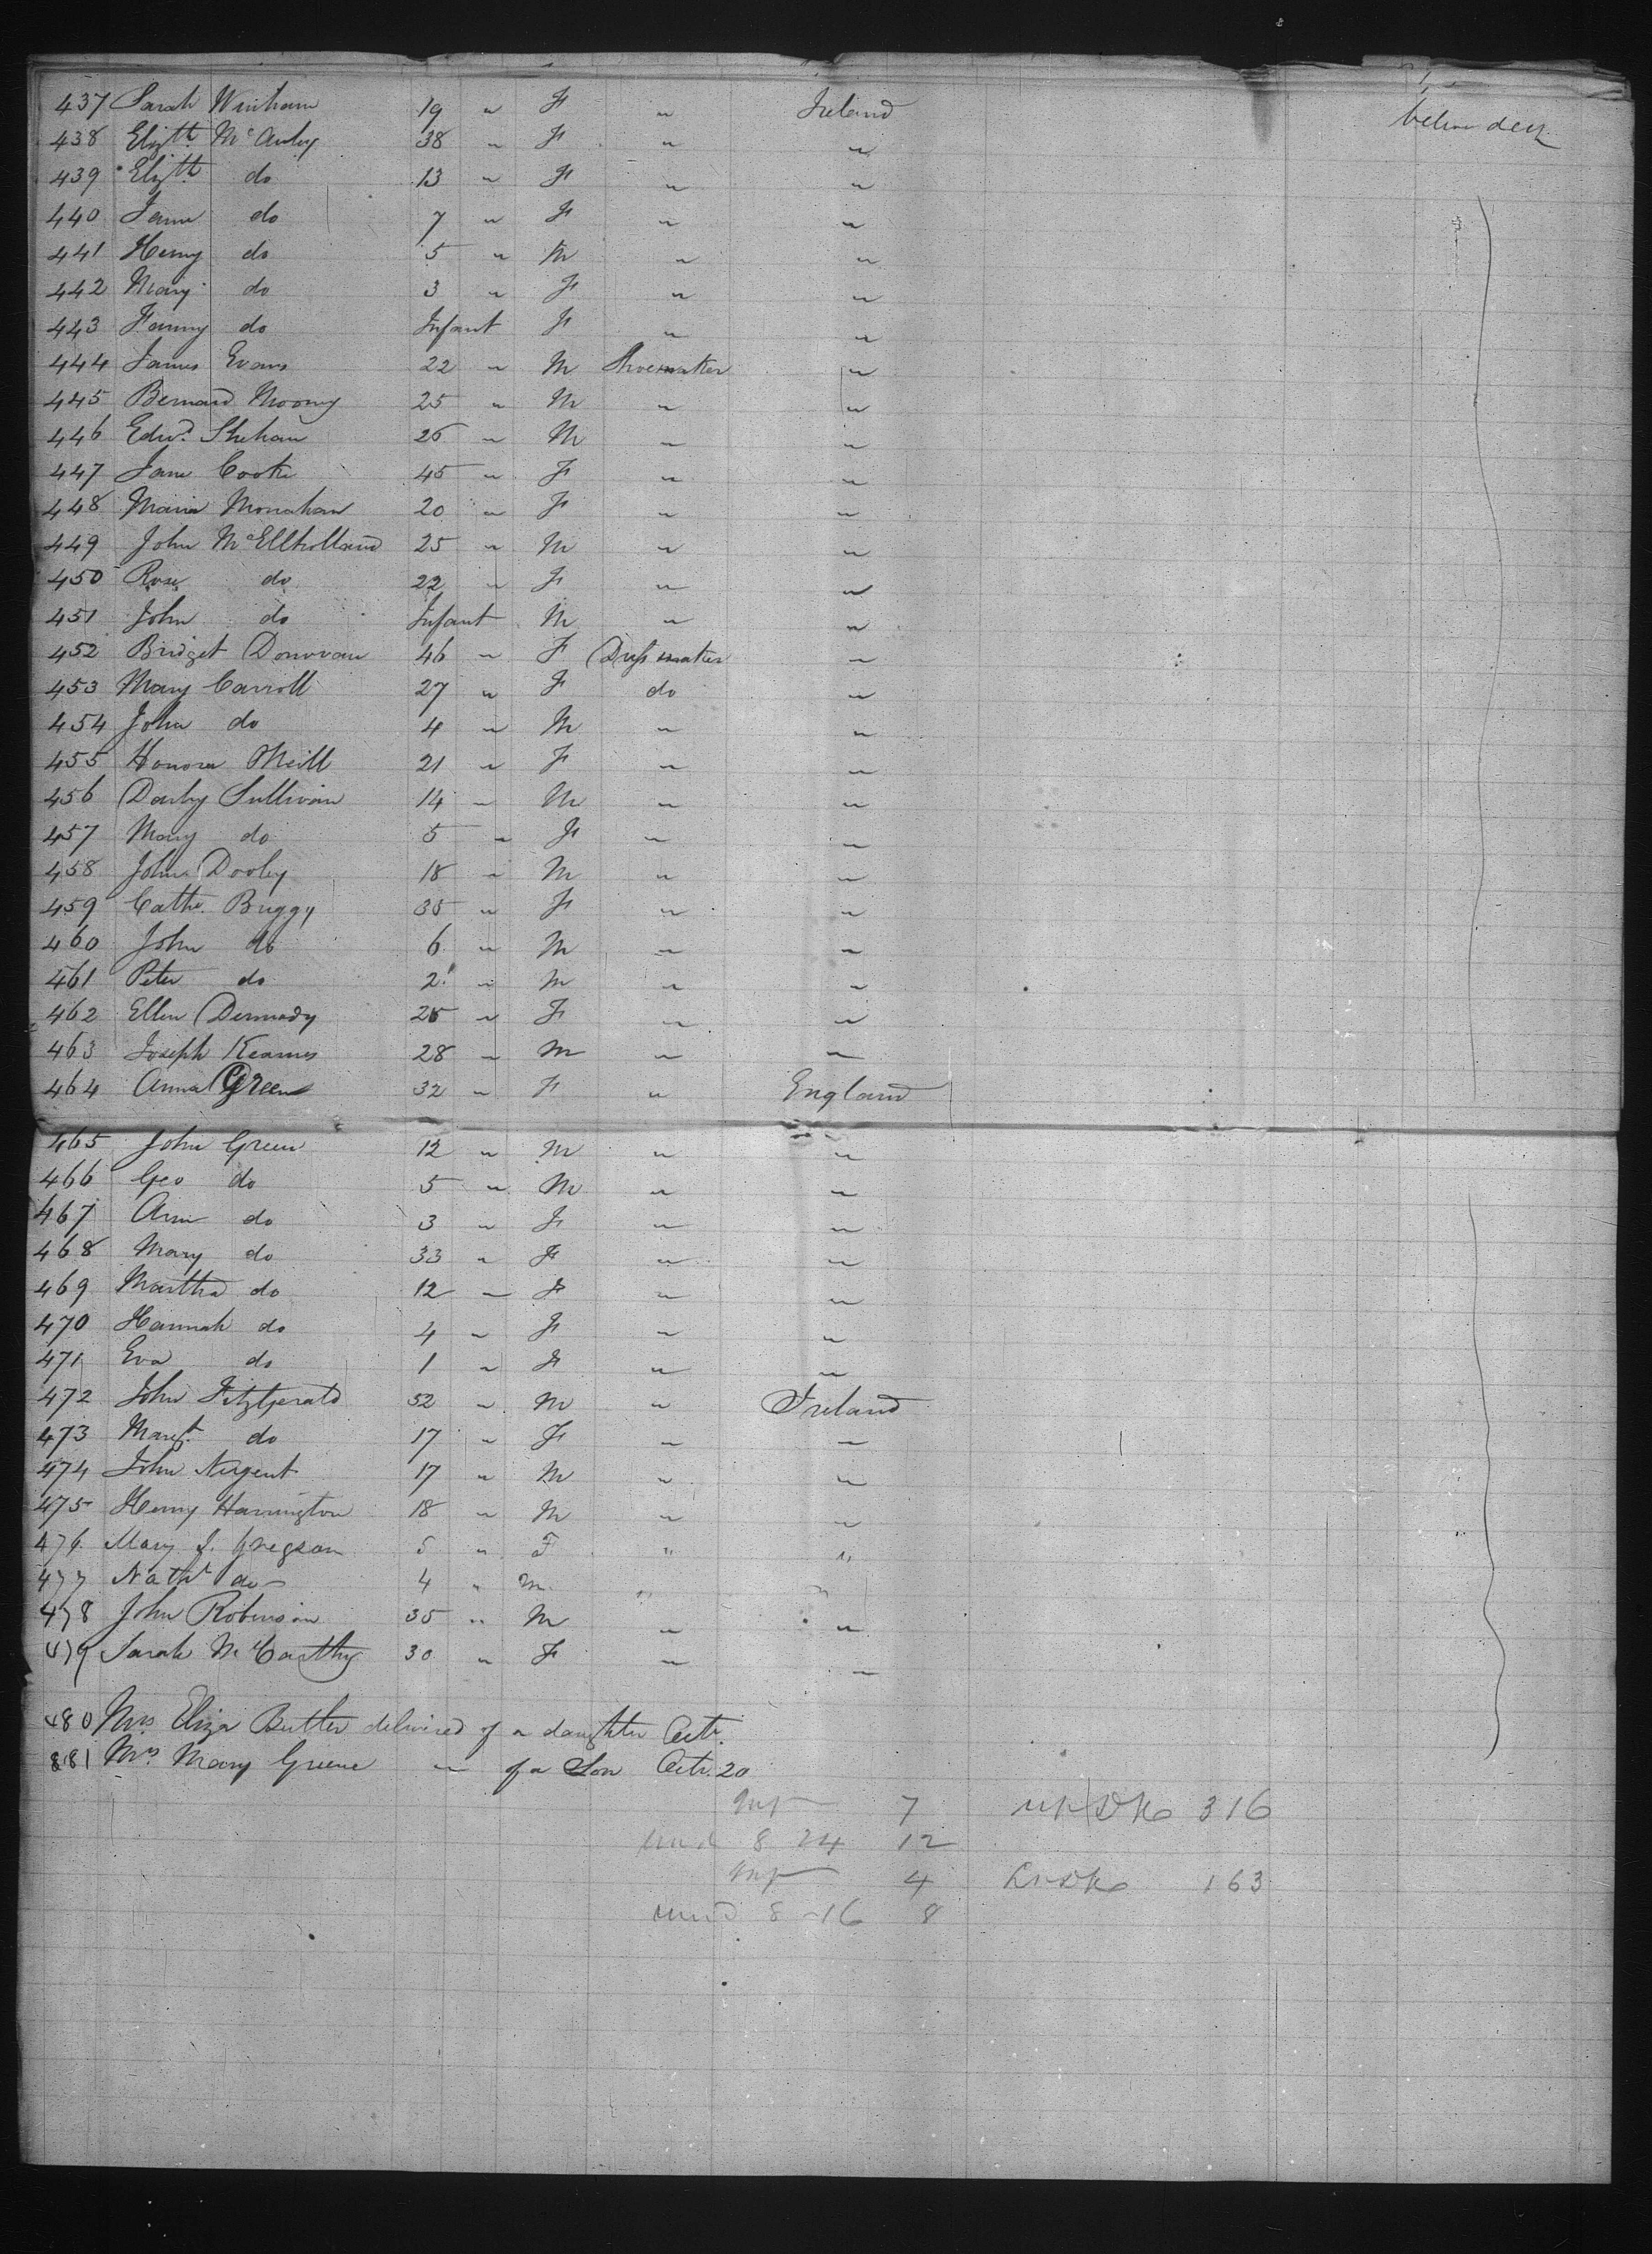 437 Sarah Winham 19 " F " Ireland below deck
438 Elizth. McAuley 38 " F " "
439 Elizth do 13 " F " "
440 Jane do 7 " F " "
441 Henry do 5 " M " "
442 Mary do 3 " F " "
443 Fanny do Infant F " "
444 James Evans 22 " M Shoemaker "
445 Bernard Moony 25 " M " "
446 Edwd. Shehan 26 " M " "
447 Jane Cooke 45 " F " "
448 Maria Monahan 20 " F " "
449 John McEllholland 25 " M " "
450 Rose do 22 " F " "
451 John do Infant M " "
452 Bridget Donovan 46 " F Dressmaker "
453 Mary Carroll 27 " F do "
454 John do 4 " M " "
455 Honora ONeill 21 " F " "
456 Darby Sullivan 14 " M " "
457 Mary do 5 " F " "
458 John Dooley 18 " M " "
459 Cathe. Buggy 35 " F " "
460 John do 6 " M " "
461 Peter do 2 " M " "
462 Ellen Dermody 25 " F " "
463 Joseph Kearnes 28 " M " "
464 Anna Green 32 " F " England
465 John Green 12 " M " "
466 Geo do 5 " M " "
467 Ann do 3 " F " "
468 Mary do 33 " F " "
469 Martha do 12 " F " "
470 Hannah do 4 " F " "
471 Eva do 1 " F " "
472 John Fitzgerald 52 " M " Ireland
473 Margt. do 17 " F " "
474 John Nugent 17 " M " "
475 Henry Harrington 18 " M " "
476 Mary J. Gregson 5 " F " "
477 Nathl do 4 " M " "
478 John Robinson 35 " M " "
479 Sarah McCarthy 30 " F " "
480 Mrs Eliza Butler delivered of a daughter Octr.
881 Mrs. Mary Greene " of a Son Octr. 20
Inf 7 316
und 8 24 12
Inf 4 163
und 8 - 16 8